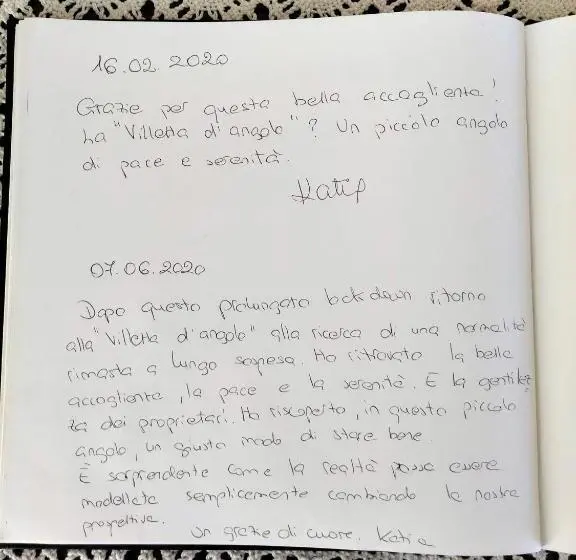 16.02.2020
Grazie per questa bella accogliente!
La "Villetta di angolo"? Un piccolo angolo
di pace e serenità.
Katia
07.06.2020
Dopo questo prolungato lockdown ritorno
alla "Villetta d'angolo" alla ricerca di una normalità
rimasta a lungo sospesa. Ho ritrovato la bella
accogliente, la pace e la serenità. E la gentilez
za dei proprietari. Ho riscoperto, in questo piccolo
angolo, un giusto modo di stare bene.
È sorprendente come la realtà possa essere
modellata semplicemente cambiando la nostra
prospettiva.
Un grazie di cuore. Katia